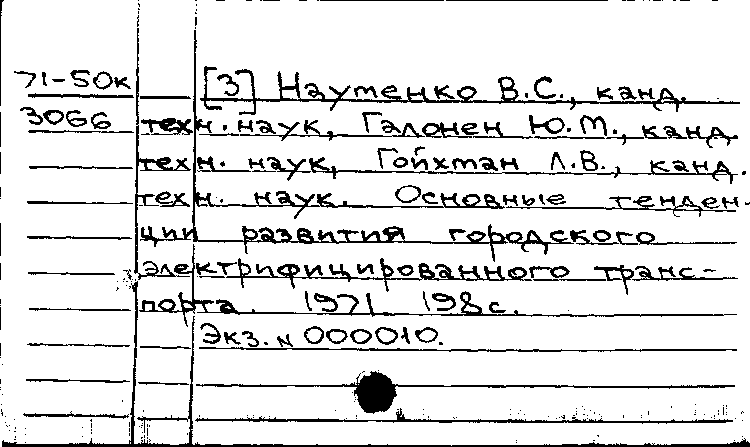 71-50к [3] Науменко В.С., канд.
3066 техн. наук, Галонен Ю.М., канд.
техн. наук, Гойхман Л.В., канд.
техн. наук. Основные тенден-
ции развития городского
электрифицированного транс-
порта. 1971 198с.
Экз. N 000010.